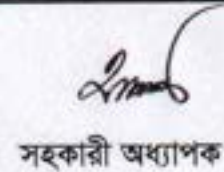 সহকারী অধ্যাপক